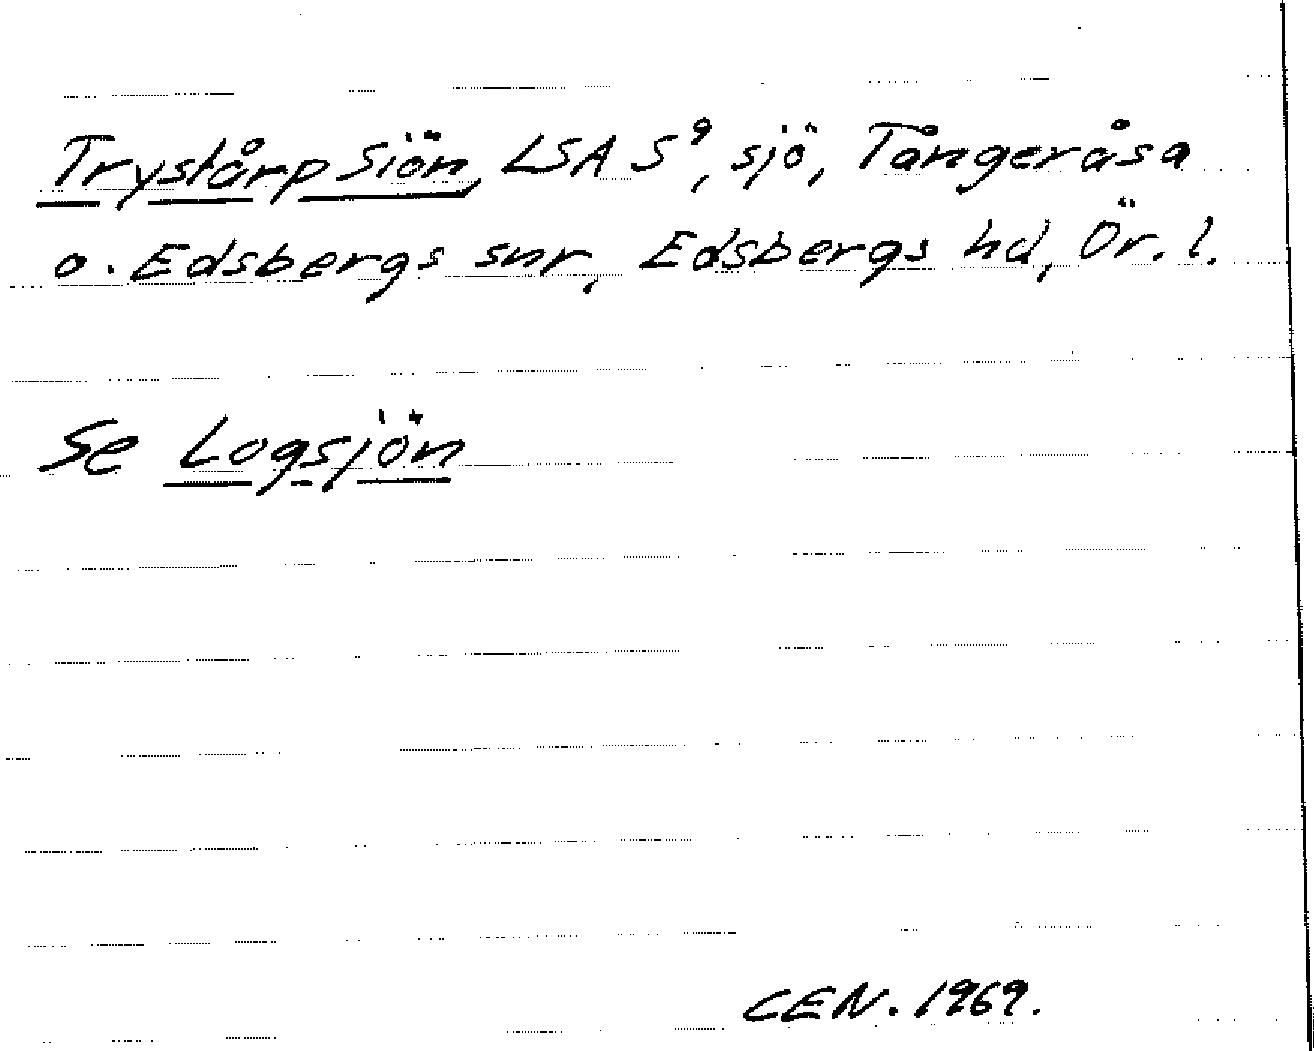 Trystårp Siön, LSA S⁹, sjö, Tångeråsa
o. Edsbergs snr, Edsbergs hd, Ör. l.
Se Logsjön
CEN. 1969.